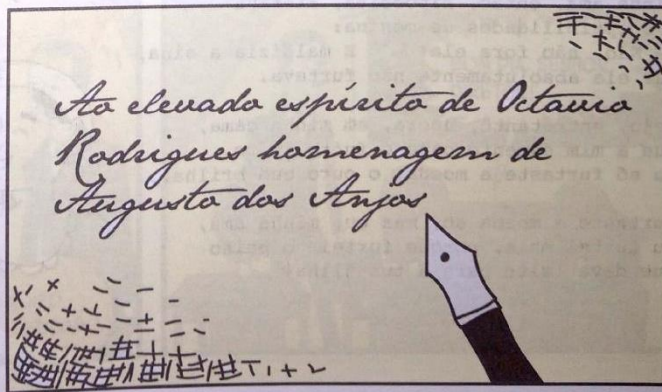 Ao elevado espírito de Octavio
Rodrigues homenagem de
Augusto dos Anjos